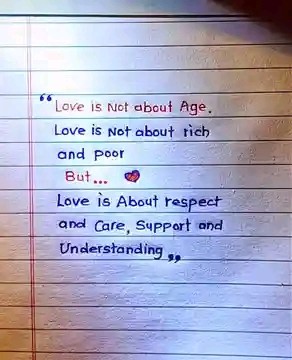 “ Love is Not about Age.
Love is Not about rich
and poor
But... ❤
Love is About respect
and Care, Support and
Understanding „